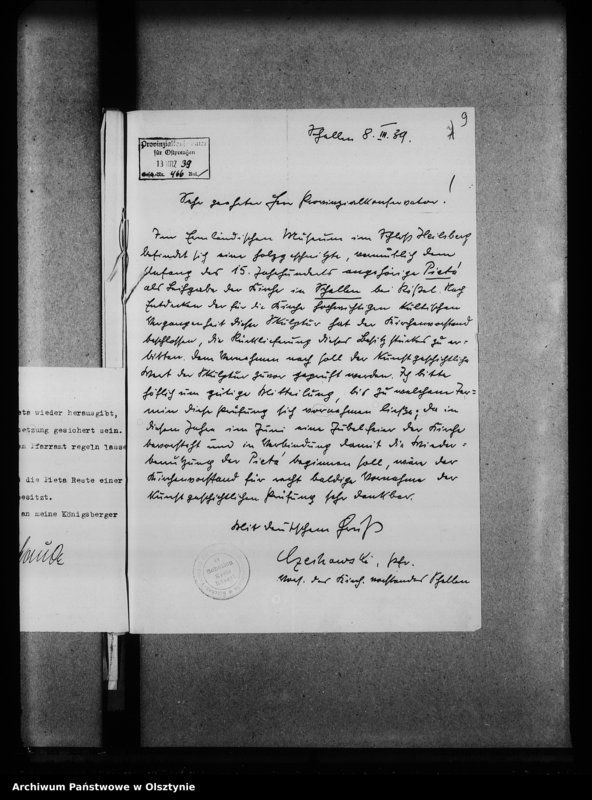 9
Schellen 8. III. 39.
Provinzialkonservator
für Ostpreußen
13 MRZ 39
466
Sehr geehrter Herr Provinzialkonservator!
Im Ermländischen Museum im Schloß Heilsberg
befindet sich eine holzgeschnitzte, vermutlich dem
Anfang des 15. Jahrhunderts angehörige Pietá
als Leihgabe der Kirche in Schellen bei Rößel. Nach
Entdecken der für die Kirche hochwichtigen kultischen
Vergangenheit dieser Skulptur hat der Kirchenvorstand
beschlossen, die Rücklieferung dieses Besitzstückes zu er-
bitten. Dem Vernehmen nach soll der kunstgeschichtliche
Wert der Skulptur zuvor geprüft werden. Ich bitte
höflich um gütige Mitteilung, bis zu welchem Ter-
min diese Prüfung sich vornehmen ließe; da in
diesem Jahre im Juni eine Jubelfeier der Kirche
bevorsteht und in Verbindung damit die Wieder-
benutzung der Pietá beginnen soll, wäre der
Kirchenvorstand für recht baldige Vornahme der
kunstgeschichtlichen Prüfung sehr dankbar.
Mit deutschem Gruß
Czeskowski, Pfr.
Vors. des Kirch. vorstandes Schellen
eta wieder herausgibt,
setzung gesichert sein.
n Pfarramt regeln lasse
n die Pieta Reste einer
besitzt.
an meine Königsberger
Archiwum Państwowe w Olsztynie